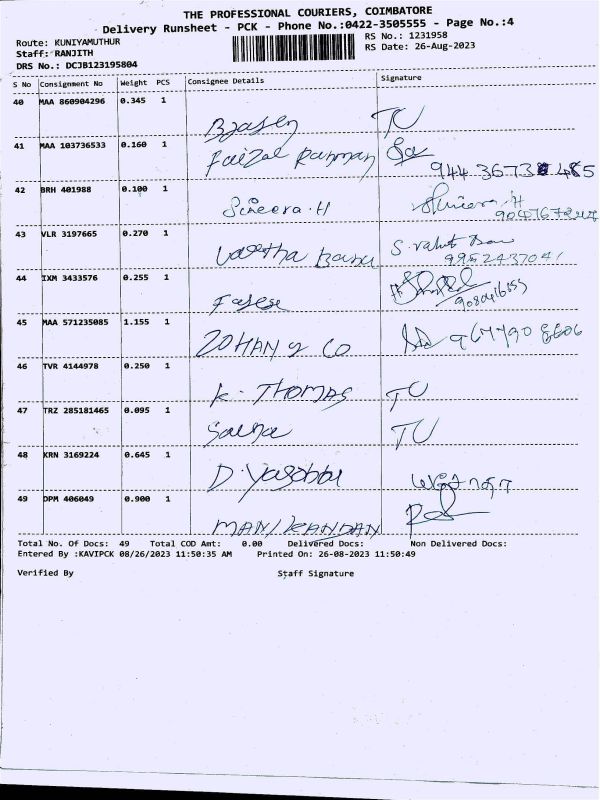 THE PROFESSIONAL COURIERS, COIMBATORE
Delivery Runsheet - PCK - Phone No.:0422-3505555 - Page No.:4
Route: KUNIYAMUTHUR
RS No.: 1231958
Staff: RANJITH
RS Date: 26-Aug-2023
DRS No.: DCJB123195804
S No Consignment No Weight PCS Consignee Details Signature
40 MAA 860904296 0.345 1
TC
41 MAA 103736533 0.160 1
Faizal Rahman
42 BRH 401988 0.100 1
Sineera.H
43 VLR 3197665 0.270 1
Banu
9952437041
44 IXM 3433576 0.255 1
45 MAA 571235085 1.155 1
ZOHAN & CO
46 TVR 4144978 0.250 1
K. THOMAS TC
47 TRZ 285181465 0.095 1
TC
48 KRN 3169224 0.645 1
49 OPM 406049 0.900 1
MANIKANDAN
Total No. Of Docs: 49 Total COD Amt: 0.00 Delivered Docs: Non Delivered Docs:
Entered By :KAVIPCK 08/26/2023 11:50:35 AM Printed On: 26-08-2023 11:50:49
Verified By Staff Signature